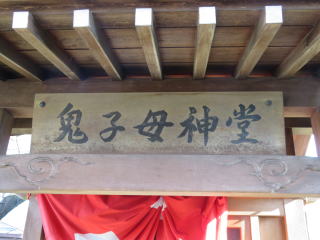 鬼子母神堂